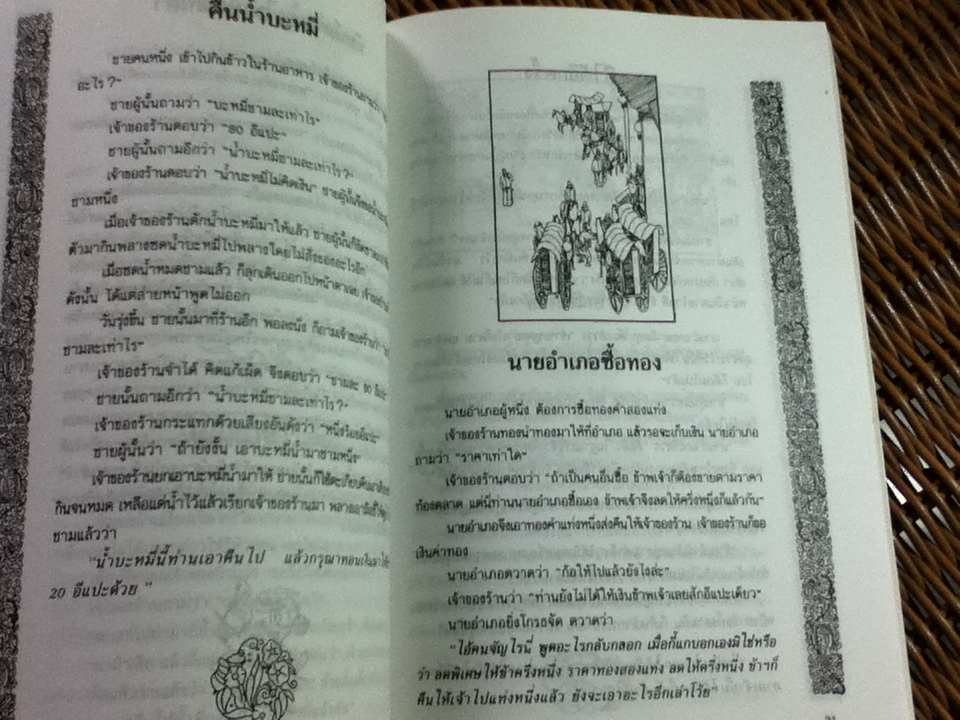 คืนน้ำบะหมี่
ชายคนหนึ่ง เข้าไปกินข้าวในร้านอาหาร เจ้าของร้านถามว่า
อะไร ?"
ชายผู้นั้นถามว่า "บะหมี่ชามละเท่าไร"
เจ้าของร้านตอบว่า "80 อีแปะ"
ชายผู้นั้นถามอีกว่า "น้ำบะหมี่ชามละเท่าไร ?"
เจ้าของร้านตอบว่า "น้ำบะหมี่ไม่คิดเงิน" ชายผู้นั้นก็ขอ
ชามหนึ่ง
เมื่อเจ้าของร้านตักน้ำบะหมี่มาให้แล้ว ชายผู้นั้นก็
ตัวมากินพลางซดน้ำบะหมี่ไปพลางโดยไม่สั่งของอะไรอีก
เมื่อซดน้ำหมดชามแล้ว ก็ลุกเดินออกไปหน้าตาเฉย
ดังนั้น ได้แต่ส่ายหน้าพูดไม่ออก
วันรุ่งขึ้น ชายนั้นมาที่ร้านอีก พอลงนั่ง ก็ถามเจ้าของร้านว่า
ชามละเท่าไร"
เจ้าของร้านจำได้ คิดแก้เผ็ด จึงตอบว่า "ชามละ 80 อีแปะ"
ชายนั้นถามอีกว่า "น้ำบะหมี่ชามละเท่าไร ?"
เจ้าของร้านกระแทกด้วยเสียงอันดังว่า "หนึ่งร้อยอีแปะ"
ชายผู้นั้นว่า "ถ้ายังงั้น เอาบะหมี่น้ำมาชามหนึ่ง"
เจ้าของร้านยกเอาบะหมี่น้ำมาให้ ชายนั้นก็ใช้ตะเกียบ
กินจนหมด เหลือแต่น้ำไว้แล้วเรียกเจ้าของร้านมา พลาง
ชามแล้วว่า
"น้ำบะหมี่นี้ท่านเอาคืนไป แล้วกรุณาทอนเงินมาให้
20 อีแปะด้วย "
นายอำเภอซื้อทอง
นายอำเภอผู้หนึ่ง ต้องการซื้อทองคำสองแท่ง
เจ้าของร้านทองนำทองมาให้ที่อำเภอ แล้วรอจะเก็บเงิน นายอำเภอ
ถามว่า "ราคาเท่าใด"
เจ้าของร้านตอบว่า "ถ้าเป็นคนอื่นซื้อ ข้าพเจ้าก็ต้องขายตามราคา
ท้องตลาด แต่นี่ท่านนายอำเภอซื้อเอง ข้าพเจ้าจึงลดให้ครึ่งหนึ่งก็แล้วกัน"
นายอำเภอจึงเอาทองคำแท่งหนึ่งส่งคืนให้เจ้าของร้าน เจ้าของร้านก็ขอ
เงินค่าทอง
นายอำเภอตวาดว่า "ก้อให้ไปแล้วยังไงล่ะ"
เจ้าของร้านว่า "ท่านยังไม่ได้ให้เงินข้าพเจ้าเลยสักอีแปะเดียว"
นายอำเภอยิ่งโกรธจัด ตวาดว่า
"ไอ้คนจัญไรนี่ พูดอะไรกลับกลอก เมื่อกี้แกบอกเองมิใช่หรือ
ว่า ลดพิเศษให้ข้าครึ่งหนึ่ง ราคาทองสองแท่ง ลดให้ครึ่งหนึ่ง ข้าฯก็
คืนให้เจ้าไปแท่งหนึ่งแล้ว ยังจะเอาอะไรอีกเล่าโว้ย"